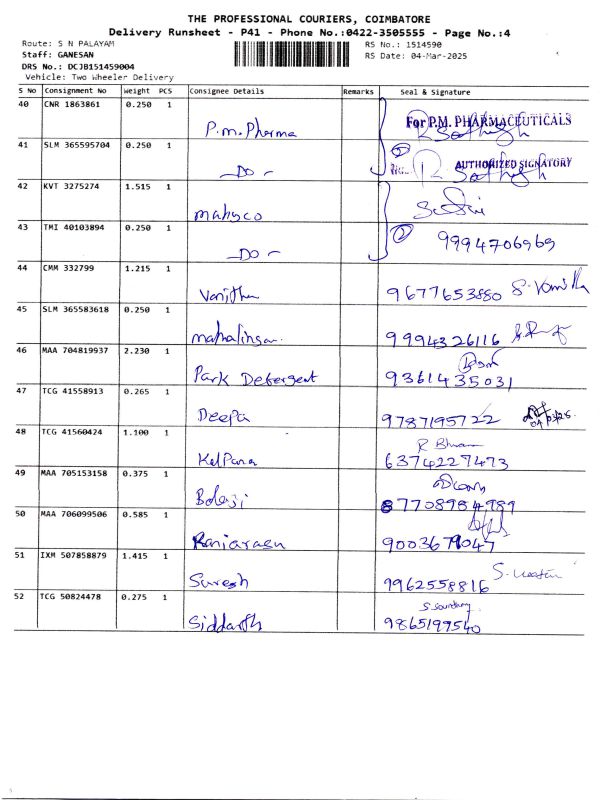 THE PROFESSIONAL COURIERS, COIMBATORE
Delivery Runsheet - P41 - Phone No.:0422-3505555 - Page No.:4
Route: S N PALAYAM
RS No.: 1514590
Staff: GANESAN
RS Date: 04-Mar-2025
DRS No.: DCJB151459004
Vehicle: Two Wheeler Delivery
S No Consignment No Weight PCS Consignee Details Remarks Seal & Signature
40 CNR 1863861 0.250 1
P.m. Pharma
For P.M. PHARMACEUTICALS
41 SLM 365595704 0.250 1
—Do—
AUTHORIZED SIGNATORY
42 KVT 3275274 1.515 1
mahyco
43 TMI 40103894 0.250 1
—Do—
2 9994706969
44 CMM 332799 1.215 1
Vanitha 9677653880 S. Vanitha
45 SLM 365583618 0.250 1
mahalingam 9994326116
46 MAA 704819937 2.230 1
Park Detergent 9361435031
47 TCG 41558913 0.265 1
Deepa 9787195722
48 TCG 41560424 1.100 1
Kalpana 6374227473
49 MAA 705153158 0.375 1
Balaji
50 MAA 706099506 0.585 1
51 IXM 507858879 1.415 1
Suresh 9962558816
52 TCG 50824478 0.275 1
Siddarth 9865199540